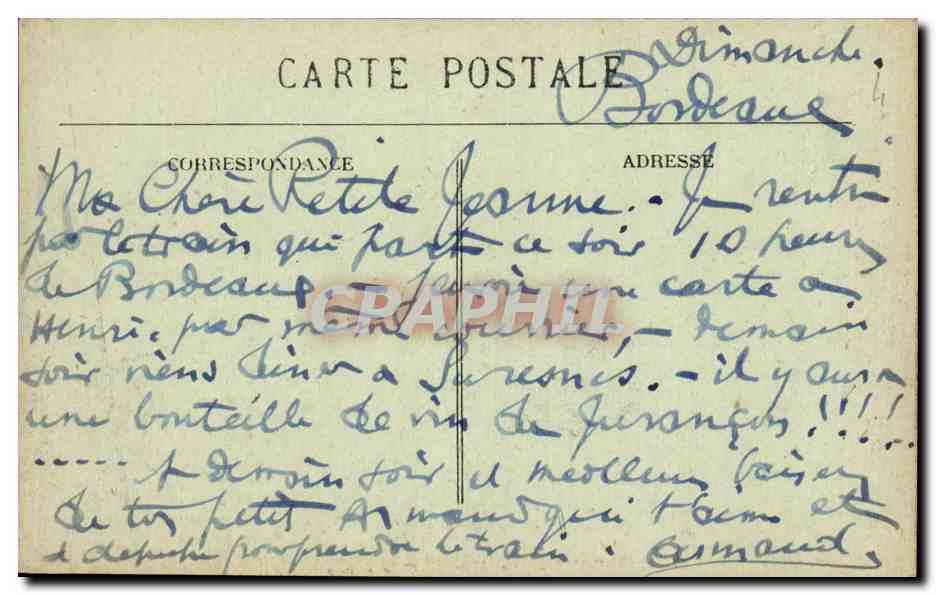 Dimanche.
CARTE POSTALE
Bordeaux
CORRESPONDANCE
ADRESSE
Ma Chère Petite Jeanne. - Je rentre
par le train qui part ce soir 10 heures
de Bordeaux. - J'envoie une carte a
Henri, par même courrier, - demain
soir viens diner a Suresnes. - il y aura
une bouteille de vin de Jurançon !!!!
..... A demain soir et meilleurs baisers
de ton petit Armand qui t'aime et
se dépêche pour prendre le train. Armand.
CPAPHIL